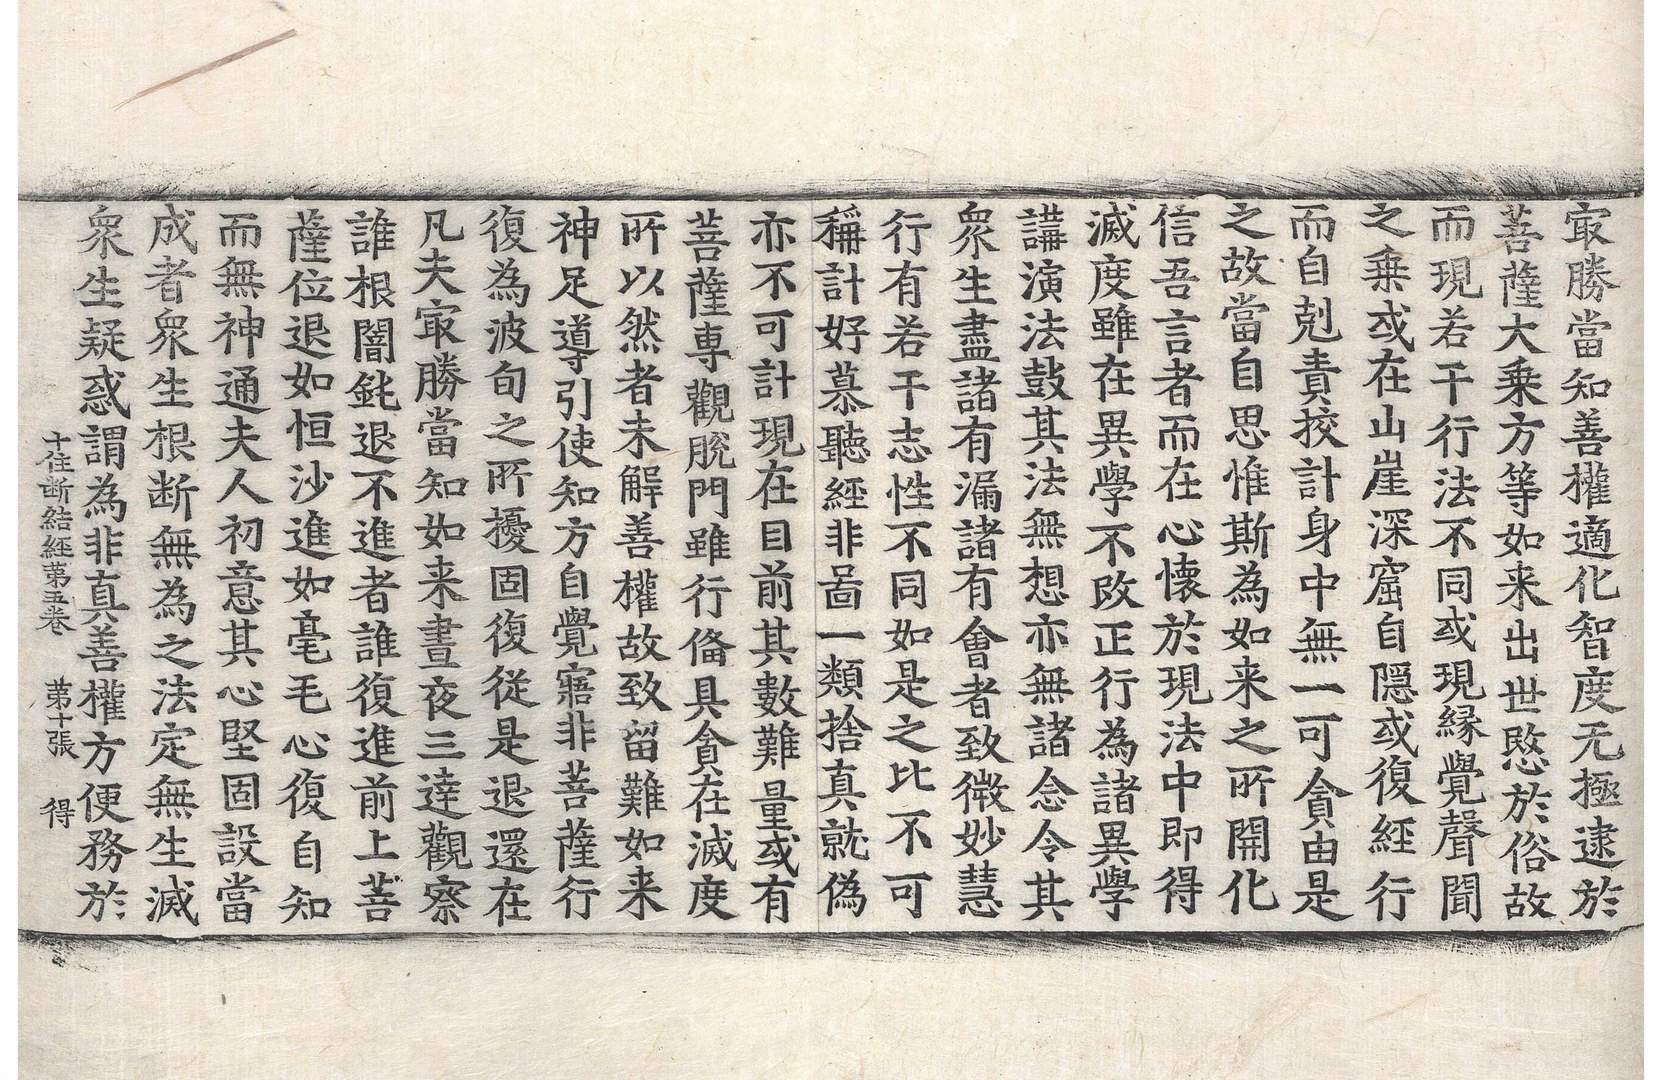 㝡勝當知善權適化智度无極逮於
菩薩大乗方等如来出世愍於俗故
而現若干行法不同或現縁覺聲聞
之乗或在山崖深窟自隠或復經行
而自剋責挍計身中無一可貪由是
之故當自思惟斯為如来之所開化
信吾言者而在心懐於現法中即得
滅度雖在異學不改正行為諸異學
講演法鼓其法無想亦無諸念令其
衆生盡諸有漏諸有會者致微妙慧
行有若干志性不同如是之比不可
稱計好慕聽經非啚一類捨真就偽
亦不可計現在目前其數難量或有
菩薩專觀脫門雖行俻具貪在滅度
所以然者未解善權故致留難如来
神足導引使知方自覺寤非菩薩行
復為波旬之所擾固復從是退還在
凡夫㝡勝當知如来晝夜三達觀察
誰根闇鈍退不進者誰復進前上菩
薩位退如恒沙進如毫毛心復自知
而無神通夫人初意其心堅固設當
成者衆生根断無為之法定無生滅
衆生疑惑謂為非真善權方便務於
十住断結經第五卷　第十張　得